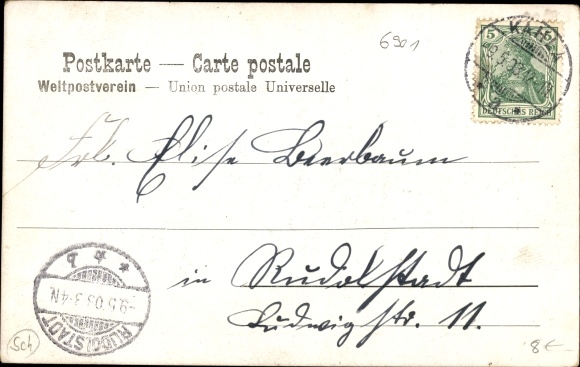 6901
Postkarte — Carte postale
Weltpostverein — Union postale Universelle
5
DEUTSCHES REICH
KAHLA
Frl. Elise Beerbaum
in Rudolstadt
Ludwigstr. 11.
RUDOLSTADT
-9.5.03.3-4N
Sch
8€